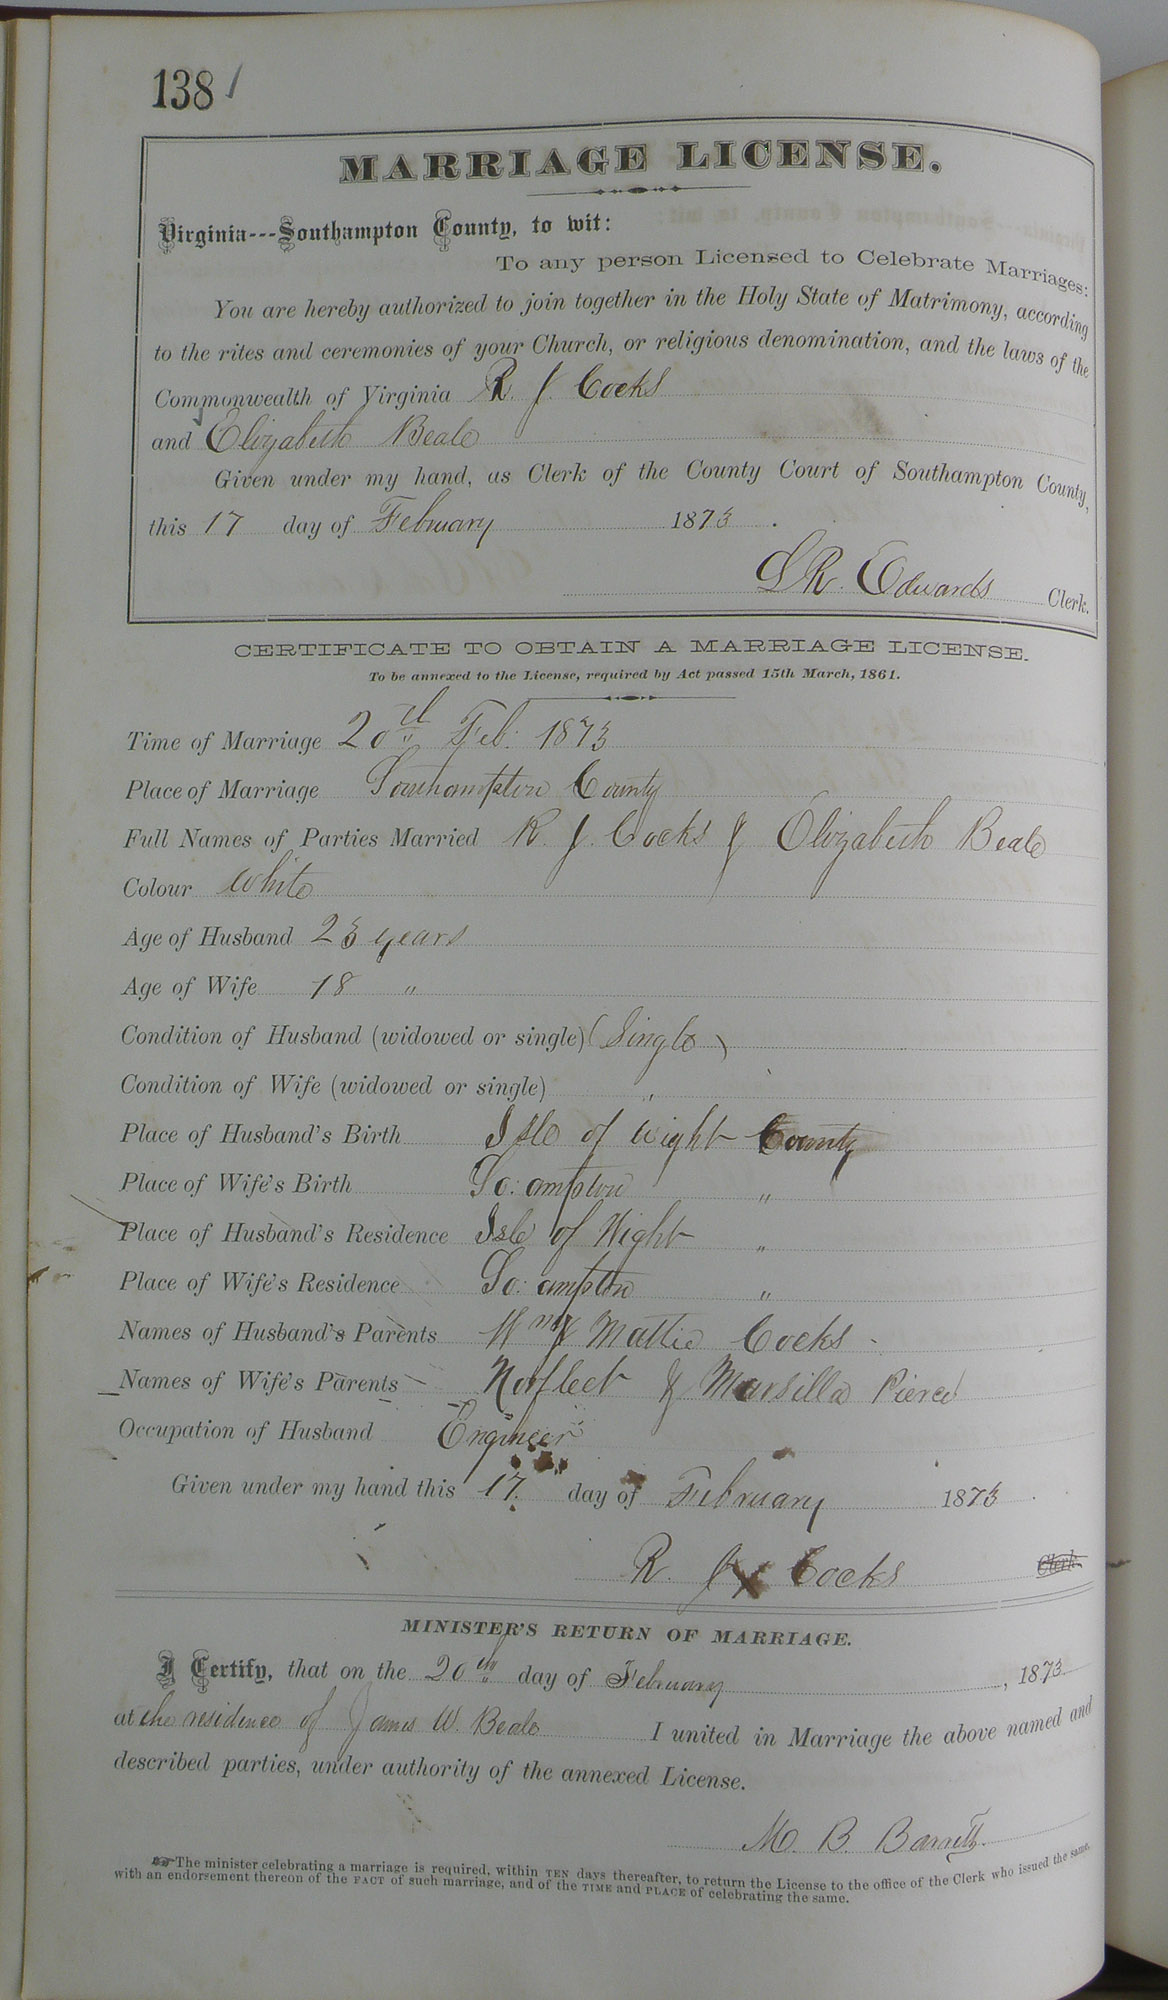 138
MARRIAGE LICENSE.
Virginia---Southampton County, to wit:
To any person Licensed to Celebrate Marriages:
You are hereby authorized to join together in the Holy State of Matrimony, according
to the rites and ceremonies of your Church, or religious denomination, and the laws of the
Commonwealth of Virginia R. J. Cocks
and Elizabeth Beale
Given under my hand, as Clerk of the County Court of Southampton County,
this 17 day of February 1873.
L R. Edwards Clerk.
CERTIFICATE TO OBTAIN A MARRIAGE LICENSE.
To be annexed to the License, required by Act passed 15th March, 1861.
Time of Marriage 20th Feb. 1873
Place of Marriage Southampton County
Full Names of Parties Married R. J. Cocks & Elizabeth Beale
Colour White
Age of Husband 23 years
Age of Wife 18 "
Condition of Husband (widowed or single) (Single)
Condition of Wife (widowed or single) "
Place of Husband's Birth Isle of Wight County
Place of Wife's Birth So: ampton "
Place of Husband's Residence Isle of Wight "
Place of Wife's Residence So: ampton "
Names of Husband's Parents Wm & Mattie Cocks -
Names of Wife's Parents Norfleet & Marsilla Pierce
Occupation of Husband Engineer
Given under my hand this 17. day of February 1873
R J Cocks Clerk.
MINISTER'S RETURN OF MARRIAGE.
I Certify, that on the 20th day of February, 1873
at the residence of James W. Beale I united in Marriage the above named and
described parties, under authority of the annexed License.
M. B. Barrett.
The minister celebrating a marriage is required, within TEN days thereafter, to return the License to the office of the Clerk who issued the same,
with an endorsement thereon of the FACT of such marriage, and of the TIME and PLACE of celebrating the same.